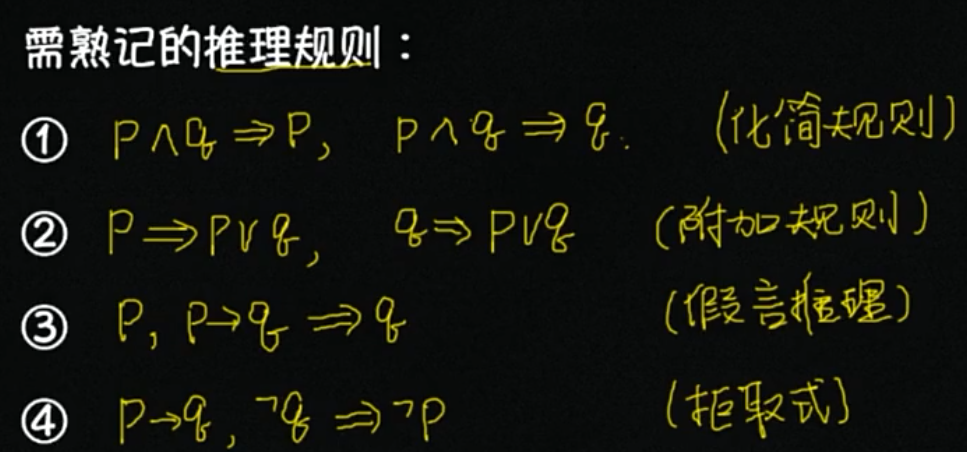 需熟记的推理规则：
① p∧q⇒p, p∧q⇒q. (化简规则)
② p⇒p∨q, q⇒p∨q (附加规则)
③ p, p→q⇒q (假言推理)
④ p→q, ¬q⇒¬p (拒取式)